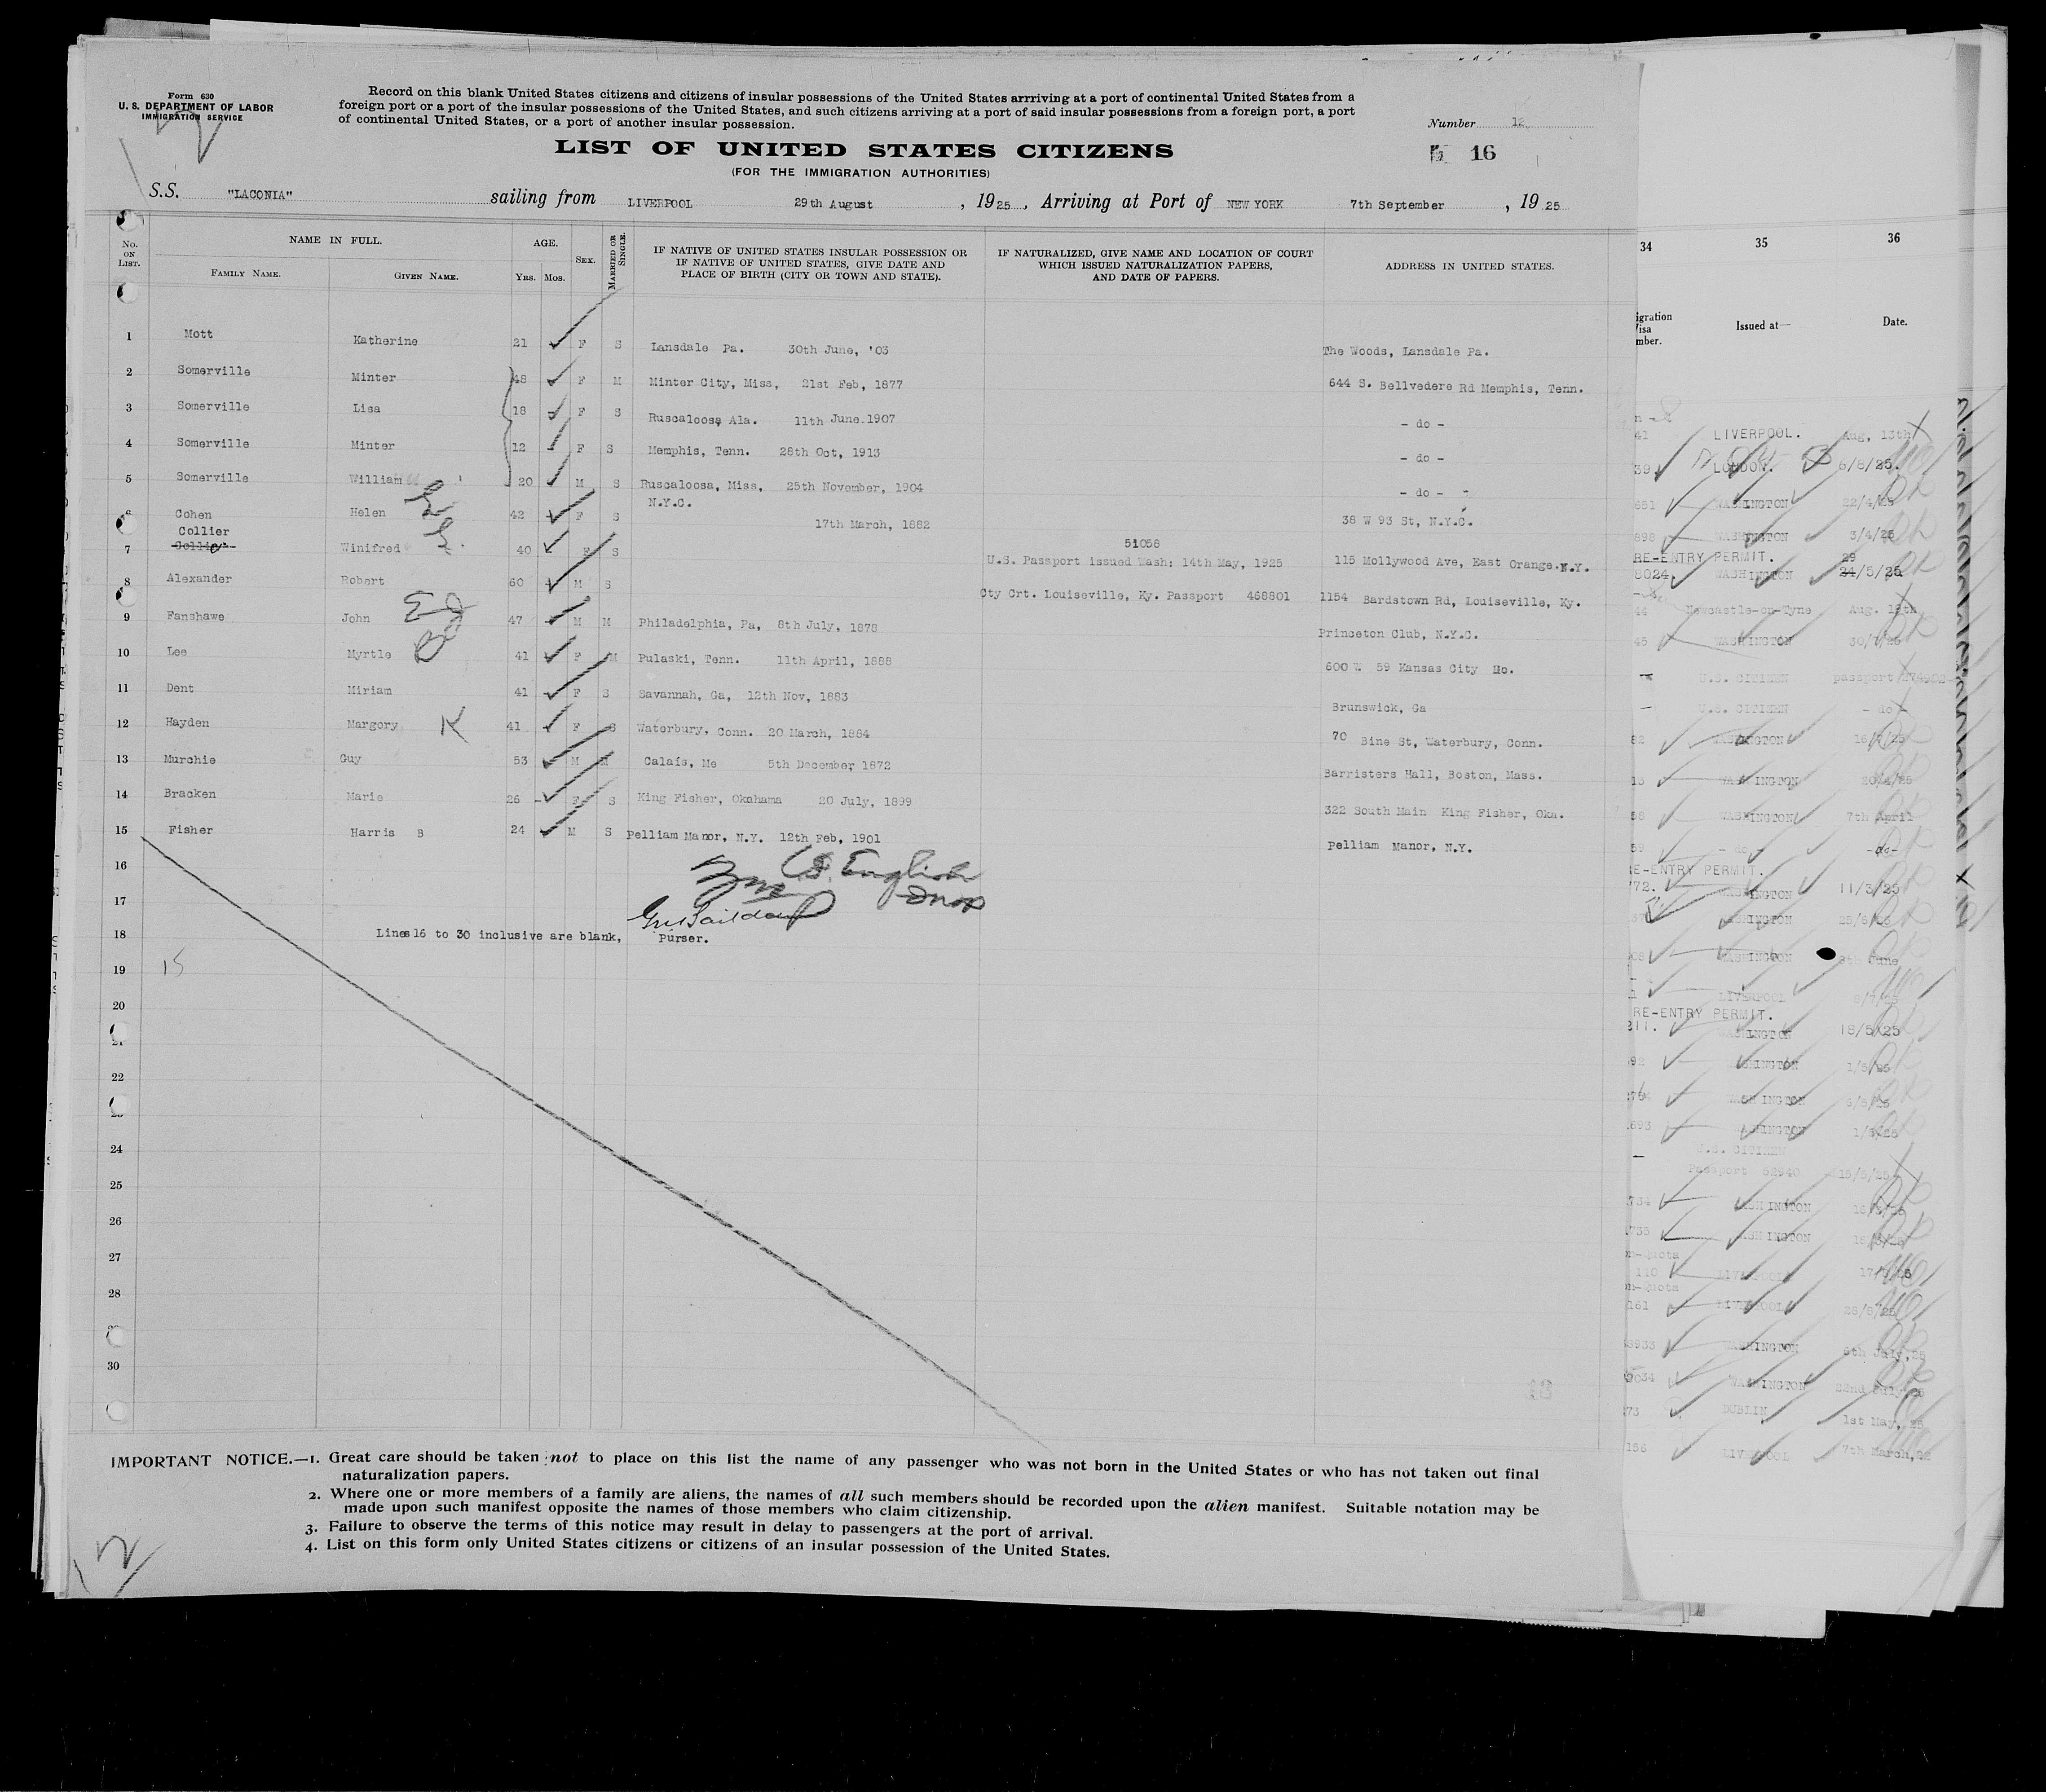 Form 630
U. S. DEPARTMENT OF LABOR
IMMIGRATION SERVICE
Record on this blank United States citizens and citizens of insular possessions of the United States arrriving at a port of continental United States from a
foreign port or a port of the insular possessions of the United States, and such citizens arriving at a port of said insular possessions from a foreign port, a port
of continental United States, or a port of another insular possession.
Number 12
LIST OF UNITED STATES CITIZENS
16
(FOR THE IMMIGRATION AUTHORITIES)
S.S. "LACONIA" sailing from LIVERPOOL 29th August , 1925 , Arriving at Port of NEW YORK 7th September , 1925
No. ON LIST. NAME IN FULL. FAMILY NAME. GIVEN NAME. AGE. Yrs. Mos. SEX. MARRIED OR SINGLE. IF NATIVE OF UNITED STATES INSULAR POSSESSION OR IF NATIVE OF UNITED STATES, GIVE DATE AND PLACE OF BIRTH (CITY OR TOWN AND STATE). IF NATURALIZED, GIVE NAME AND LOCATION OF COURT WHICH ISSUED NATURALIZATION PAPERS, AND DATE OF PAPERS. ADDRESS IN UNITED STATES.
1 Mott Katherine 21 F S Lansdale Pa. 30th June, '03 The Woods, Lansdale Pa.
2 Somerville Minter 48 F M Minter City, Miss, 21st Feb, 1877 644 S. Bellvedere Rd Memphis, Tenn.
3 Somerville Lisa 18 F S Ruscaloosa Ala. 11th June.1907 - do -
4 Somerville Minter 12 F S Memphis, Tenn. 28th Oct, 1913 - do -
5 Somerville William 20 M S Ruscaloosa, Miss, 25th November, 1904 - do -
6 Cohen Helen 42 F S N.Y.C. 17th March, 1882 38 W 93 St, N.Y.C.
Collier
7 Winifred 40 F S 51058 U.S. Passport issued Wash: 14th May, 1925 115 Mollywood Ave, East Orange.N.Y.
8 Alexander Robert 60 M S Cty Crt. Louiseville, Ky. Passport 468801 1154 Bardstown Rd, Louiseville, Ky.
9 Fanshawe John 47 M M Philadelphia, Pa, 8th July, 1878 Princeton Club, N.Y.C.
10 Lee Myrtle 41 F M Pulaski, Tenn. 11th April, 1888 600 W 59 Kansas City Mo.
11 Dent Miriam 41 F S Savannah, Ga, 12th Nov, 1883 Brunswick, Ga
12 Hayden Margory K 41 F S Waterbury, Conn. 20 March, 1884 70 Bine St, Waterbury, Conn.
13 Murchie Guy 53 M M Calais, Me 5th December, 1872 Barristers Hall, Boston, Mass.
14 Bracken Marie 26 F S King Fisher, Okahama 20 July, 1899 322 South Main King Fisher, Oka.
15 Fisher Harris B 24 M S Pelliam Manor, N.Y. 12th Feb, 1901 Pelliam Manor, N.Y.
16
17
18 Lines16 to 30 inclusive are blank, Purser.
19 15
20
21
22
24
25
26
27
28
30
IMPORTANT NOTICE.—1. Great care should be taken not to place on this list the name of any passenger who was not born in the United States or who has not taken out final
naturalization papers.
2. Where one or more members of a family are aliens, the names of all such members should be recorded upon the alien manifest. Suitable notation may be
made upon such manifest opposite the names of those members who claim citizenship.
3. Failure to observe the terms of this notice may result in delay to passengers at the port of arrival.
4. List on this form only United States citizens or citizens of an insular possession of the United States.
12
34 35 36
Issued at— Date.
LIVERPOOL. Aug, 13th
LONDON. 6/8/25.
WASHINGTON 22/4/25
WASHINGTON 3/4/25
RE-ENTRY PERMIT. 29
WASHINGTON /5/25
Newcastle-on-Tyne
WASHINGTON 30/7/25
U.S. CITIZEN passport
U.S. CITIZEN - do -
WASHINGTON
WASHINGTON
WASHINGTON 7th April
- do - -do-
RE-ENTRY PERMIT.
WASHINGTON 11/3/25
WASHINGTON
WASHINGTON
LIVERPOOL
RE-ENTRY PERMIT.
WASHINGTON 18/5/25
WASHINGTON 1/5/25
WASHINGTON
WASHINGTON
U.S. CITIZEN
Passport 52940 15/5/25
WASHINGTON
WASHINGTON
LIVERPOOL
LIVERPOOL
WASHINGTON 6th July,25
WASHINGTON
DUBLIN 1st May, 25
LIVERPOOL 7th March,